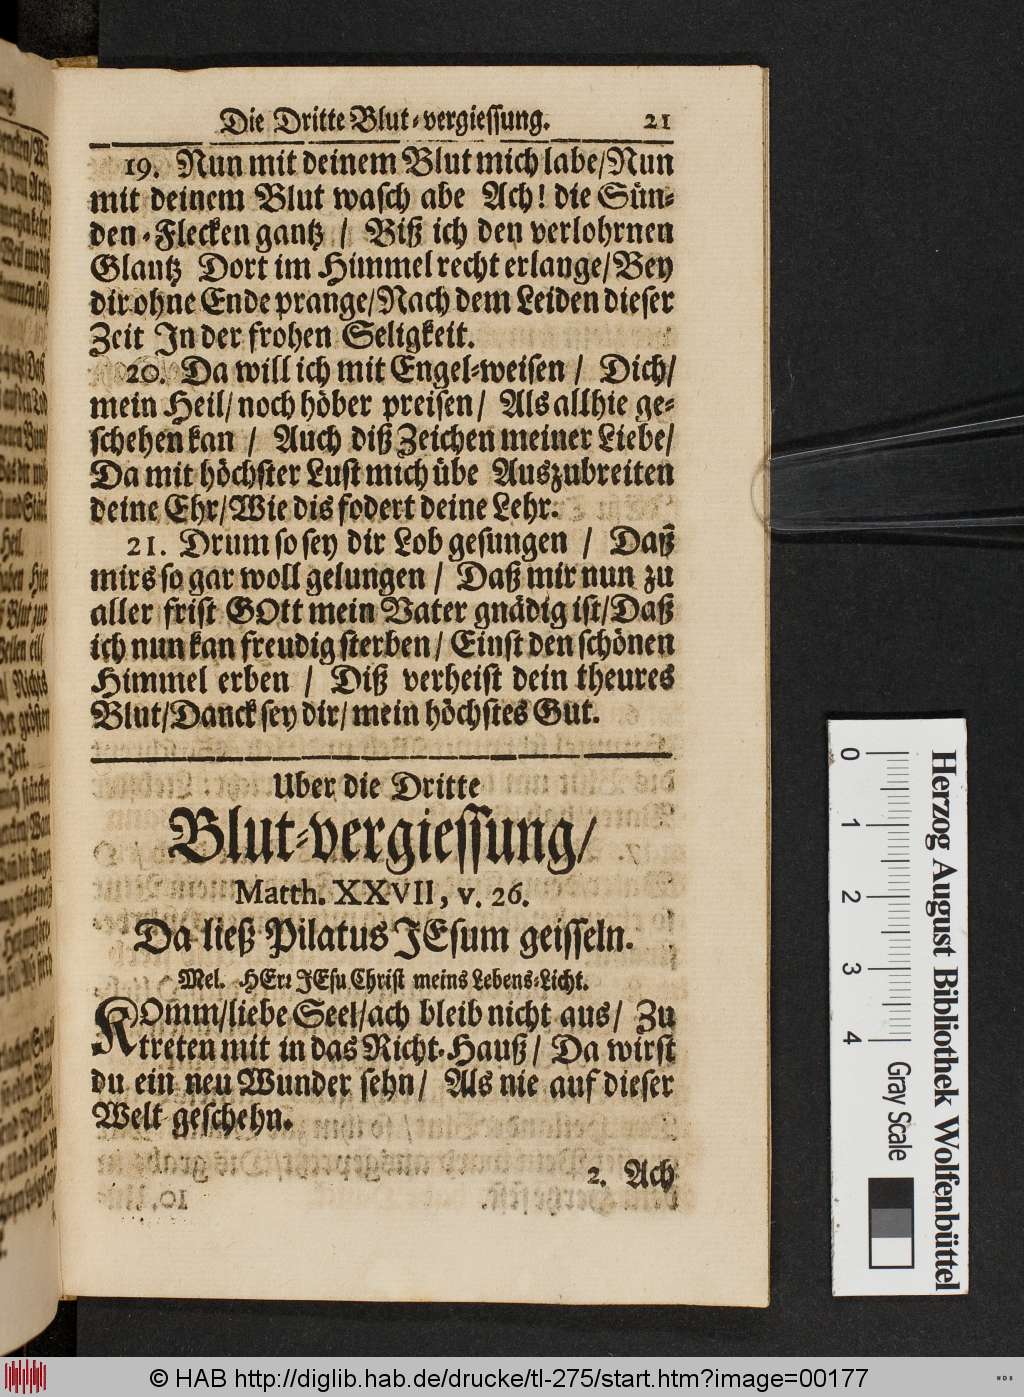 Die Dritte Blut-vergiessung. 21
19. Nun mit deinem Blut mich labe/Nun
mit deinem Blut wasch abe Ach! die Sün-
den-Flecken gantz / Biß ich den verlohrnen
Glantz Dort im Himmel recht erlange/Bey
dir ohne Ende prange/Nach dem Leiden dieser
Zeit In der frohen Seligkeit.
20. Da will ich mit Engel-weisen / Dich/
mein Heil/ noch höber preisen / Als allhie ge-
schehen kan / Auch diß Zeichen meiner Liebe/
Da mit höchster Lust mich übe Auszubreiten
deine Ehr/Wie dis fodert deine Lehr.
21. Drum so sey dir Lob gesungen / Daß
mirs so gar woll gelungen / Daß mir nun zu
aller frist GOtt mein Vater gnädig ist/Daß
ich nun kan freudig sterben / Einst den schönen
Himmel erben / Diß verheist dein theures
Blut/Danck sey dir/ mein höchstes Gut.
Uber die Dritte
Blut-vergiessung/
Matth. XXVII, v. 26.
Da ließ Pilatus JEsum geisseln.
Mel. HErr JEsu Christ meins Lebens-Licht.
KOmm/liebe Seel/ach bleib nicht aus/ Zu
treten mit in das Richt-Hauß / Da wirst
du ein neu Wunder sehn / Als nie auf dieser
Welt geschehn.
2. Ach
0 1 2 3 4
Gray Scale
Herzog August Bibliothek Wolfenbüttel
© HAB http://diglib.hab.de/drucke/tl-275/start.htm?image=00177